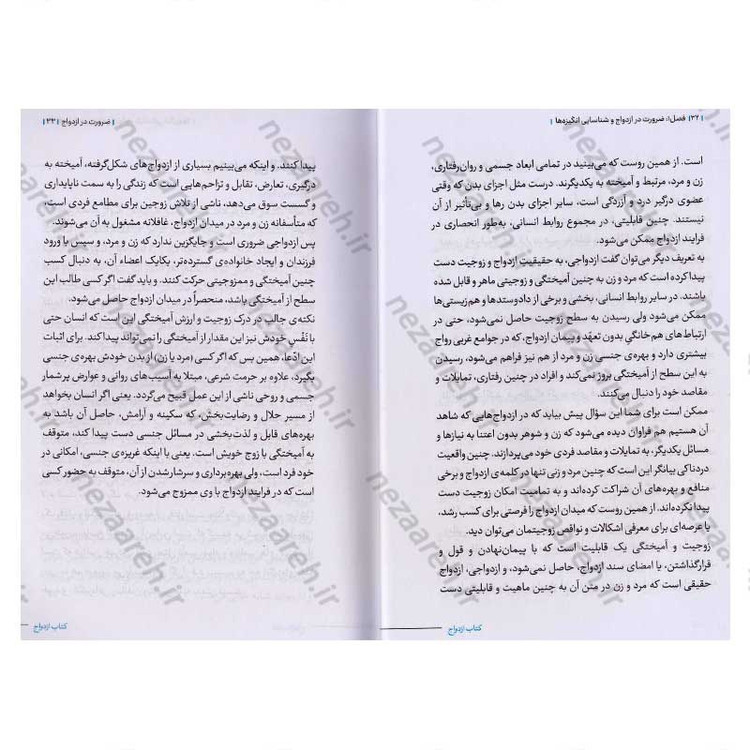 ۳۲ | فصل۱: ضرورت در ازدواج و شناسایی انگیزه‌ها
است. از همین روست که می‌بینید در تمامی ابعاد جسمی و روان‌رفتاری،
زن و مرد، مرتبط و آمیخته به یکدیگرند. درست مثل اجزای بدن که وقتی
عضوی درگیر درد و آزردگی است، سایر اجزای بدن رها و بی‌تأثیر از آن
نیستند. چنین قابلیتی، در مجموع روابط انسانی، به‌طور انحصاری در
فرایند ازدواج ممکن می‌شود.
به تعریف دیگر می‌توان گفت ازدواجی، به حقیقیتِ ازدواج و زوجیت دست
پیدا کرده است که مرد و زن به چنین آمیختگی و زوجیتی ماهر و قابل شده
باشند. در سایر روابط انسانی، بخشی و برخی از دادوستدها و هم‌زیستی‌ها
ممکن می‌شود ولی رسیدن به سطح زوجیت حاصل نمی‌شود، حتی در
ارتباط‌های هم‌خانگیِ بدون تعهّد و پیمان ازدواج، که در جوامع غربی رواج
بیشتری دارد و بهره‌ی جنسی زن و مرد از هم نیز فراهم می‌شود، رسیدن
به این سطح از آمیختگی بروز نمی‌کند و افراد در چنین رفتاری، تمایلات و
مقاصد خود را دنبال می‌کنند.
ممکن است برای شما این سؤال پیش بیاید که در ازدواج‌هایی که شاهد
آن هستیم هم فراوان دیده می‌شود که زن و شوهر بدون اعتنا به نیازها و
مسائل یکدیگر، به تمایلات و مقاصد فردی خود می‌پردازند. چنین واقعیت
دردناکی بیانگر این است که چنین مرد و زنی تنها در کلمه‌ی ازدواج و برخی
منافع و بهره‌های آن شراکت کرده‌اند و به تمامیت امکان زوجیت دست
پیدا نکرده‌اند. از همین روست که میدان ازدواج را فرصتی برای کسب رشد،
یا عرصه‌ای برای معرفی اشکالات و نواقص زوجیتمان می‌توان دید.
زوجیت و آمیختگی یک قابلیت است که با پیمان‌نهادن و قول و
قرارگذاشتن، یا امضای سند ازدواج، حاصل نمی‌شود، و ازدواجی، ازدواج
حقیقی است که مرد و زن در متن آن به چنین ماهیت و قابلیتی دست
کتاب ازدواج
ضرورت در ازدواج | ۳۳
پیدا کنند. و اینکه می‌بینیم بسیاری از ازدواج‌های شکل‌گرفته، آمیخته به
درگیری، تعارض، تقابل و تزاحم‌هایی است که زندگی را به سمت ناپایداری
و گسست سوق می‌دهد، ناشی از تلاش زوجین برای مطامع فردی است،
که متأسفانه زن و مرد در میدان ازدواج، غافلانه مشغول به آن می‌شوند.
پس ازدواجی ضروری است و جایگزین ندارد که زن و مرد، و سپس با ورود
فرزندان و ایجاد خانواده‌ی گسترده‌تر، یکایک اعضاء آن، به دنبال کسب
چنین آمیختگی و ممزوجیتی حرکت کنند. و باید گفت اگر کسی طالب این
سطح از آمیختگی باشد، منحصراً در میدان ازدواج حاصل می‌شود.
نکته‌ی جالب در درک زوجیت و ارزش آمیختگی این است که انسان حتی
با نَفْسِ خودش نیز این مقدار از آمیختگی را نمی‌تواند پیدا کند. برای اثبات
این ادّعا، همین بس که اگر کسی (مرد یا زن) از بدن خودش بهره‌ی جنسی
بگیرد، علاوه بر حرمت شرعی، مبتلا به آسیب‌های روانی و عوارض پرشمار
جسمی و روحی ناشی از این عمل قبیح می‌گردد. یعنی اگر انسان بخواهد
از مسیر حلال و رضایت‌بخش، که سکینه و آرامش، حاصل آن باشد به
بهره‌های قابل و لذت‌بخشی در مسائل جنسی دست پیدا کند، متوقف
به آمیختگی با زوج خویش است. یعنی با اینکه غریزه‌ی جنسی، امکانی در
خود فرد است، ولی بهره‌برداری و سرشارشدن از آن، متوقف به حضور کسی
است که در فرایند ازدواج با وی ممزوج می‌شود.
کتاب ازدواج
nezaareh.ir
nezaareh.ir
nezaareh.ir
nezaareh.ir
nezaareh.ir
nezaareh.ir